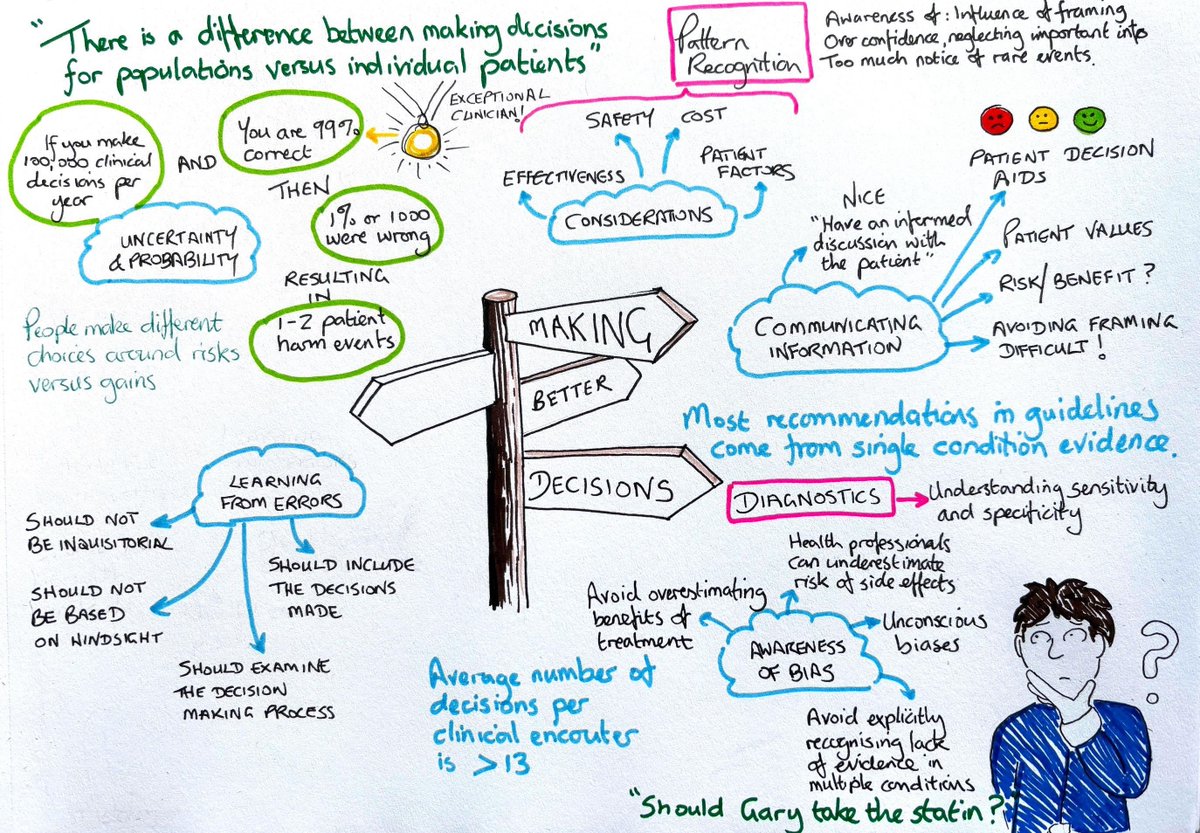 "There is a difference between making decisions
for populations versus individual patients"
If you make
100,000 clinical
decisions per
year
AND
You are 99%
correct
EXCEPTIONAL
CLINICIAN!
THEN
1% or 1000
were wrong
RESULTING
IN
1-2 patient
harm events
UNCERTAINTY
& PROBABILITY
People make different
choices around risks
versus gains
Pattern
Recognition
Awareness of: Influence of framing
Over confidence, neglecting important info
Too much notice of rare events.
SAFETY
COST
EFFECTIVENESS
PATIENT
FACTORS
CONSIDERATIONS
NICE
"Have an informed
discussion with
the patient"
PATIENT DECISION
AIDS
PATIENT VALUES
RISK/BENEFIT?
AVOIDING FRAMING
DIFFICULT!
COMMUNICATING
INFORMATION
MAKING
BETTER
DECISIONS
Most recommendations in guidelines
come from single condition evidence.
DIAGNOSTICS
Understanding sensitivity
and specificity
LEARNING
FROM ERRORS
SHOULD NOT
BE INQUISITORIAL
SHOULD NOT
BE BASED
ON HINDSIGHT
SHOULD INCLUDE
THE DECISIONS
MADE
SHOULD EXAMINE
THE DECISION
MAKING PROCESS
Average number of
decisions per
clinical encouter
is >13
Avoid overestimating
benefits of
treatment
Health professionals
can underestimate
risk of side effects
Unconscious
biases
AWARENESS
OF BIAS
Avoid explicitly
recognising lack
of evidence in
multiple conditions
?
"Should Gary take the statin?"